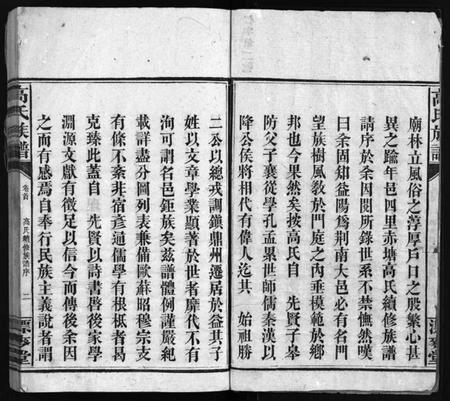 高氏族譜
廟林立風俗之淳厚戶口之殷繁心甚
異之踰年邑四里赤塘高氏續修族譜
請序於余因閱所錄世系不禁憮然嘆
曰余固知益陽為荆南大邑必有名門
望族樹風敎於門庭之內垂模範於鄉
邦也今果然矣按高氏自　先賢子皋
防父子襄從學孔孟累世師儒秦漢以
降公侯將相代有偉人迄其　始祖勝
二公以總戎訓鎮鼎州遷居於益其子
姓以文章學業顯著於世者靡代不有
洵可謂名邑鉅族矣茲譜體例謹嚴紀
載詳盡分圖列表兼備歐蘇昭穆宗支
有條不紊非宿彥通儒學有根柢者曷
克臻此蓋自　先賢以詩書啓後家學
淵源文獻有徵足以信今而傳後余因
之而有感焉自奉行民族主義說者謂
高氏族譜
卷首
高氏續修族譜序
二